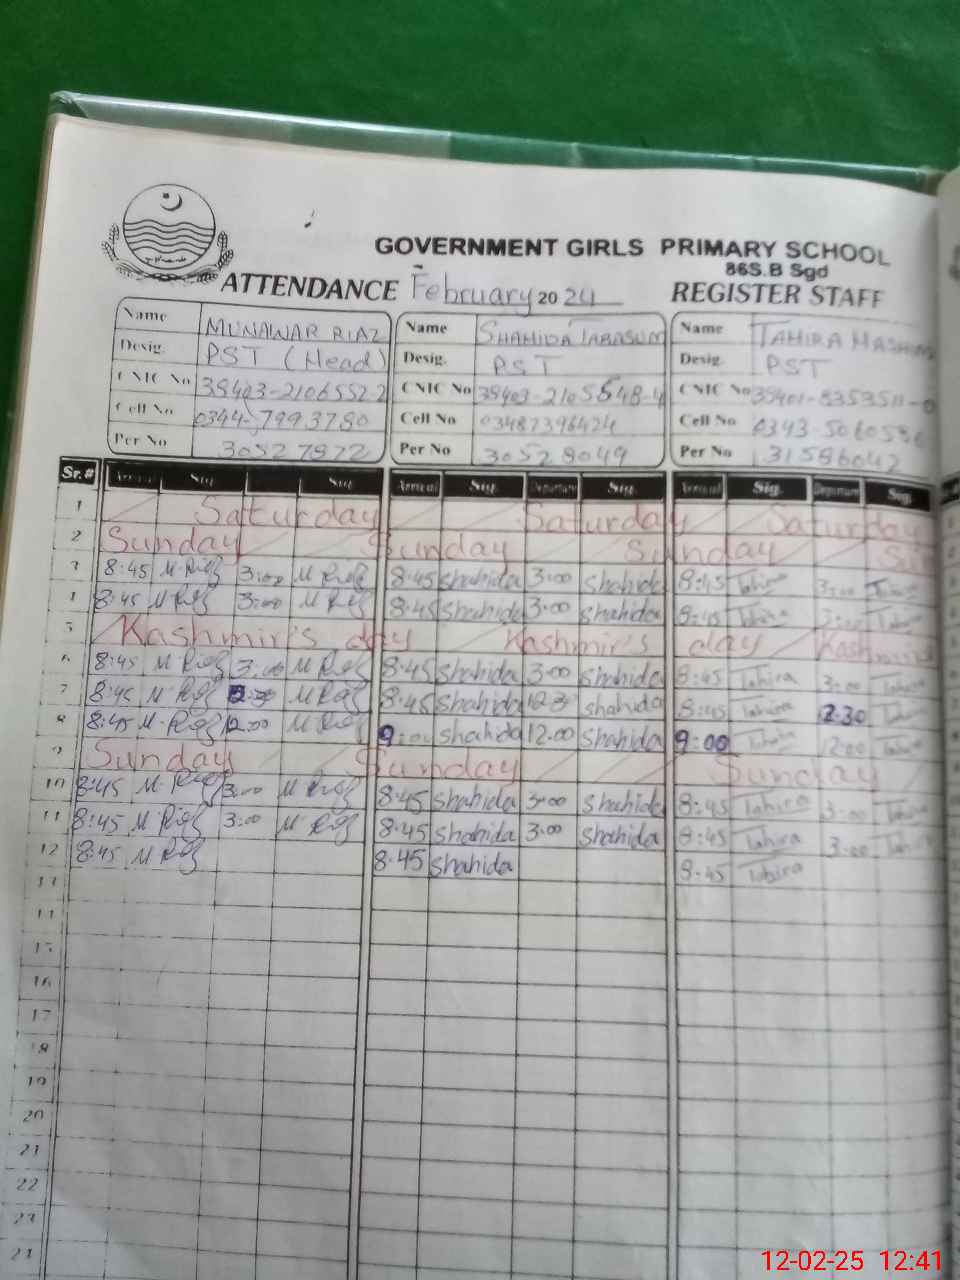 GOVERNMENT GIRLS PRIMARY SCHOOL
86S.B Sgd
ATTENDANCE February 2024 REGISTER STAFF
Name MUNAWAR RIAZ Name SHAHIDA TABASUM Name TAHIRA HASHMI
Desig. PST (Head) Desig. PST Desig. PST
CNIC No 38403-2106552-2 CNIC No 38403-2105548-4 CNIC No 38401-8353511-0
Cell No 0344-7993780 Cell No 03487396424 Cell No 0343-5060586
Per No 30527872 Per No 30528049 Per No 31586042
Sr.# Arrival Sig. Sig. Arrival Sig. Departure Sig. Arrival Sig. Departure Sig.
1 Saturday Saturday Saturday
2 Sunday Sunday Sunday Su
3 8:45 M.Riaz 3:00 M Riaz 8:45 Shahida 3:00 Shahida 8:45 Tahira 3:00 Tahira
4 8:45 M Riaz 3:00 M Riaz 8:45 Shahida 3:00 Shahida 8:45 Tahira 3:00 Tahira
5 Kashmir's day Kashmir's day Kashmir's
6 8:45 M.Riaz 3:00 M Riaz 8:45 Shahida 3:00 Shahida 8:45 Tahira 3:00 Tahira
7 8:45 M.Riaz M Riaz 8:45 Shahida 12:30 Shahida 8:45 Tahira 12.30 Tahira
8 8:45 M.Riaz 12.00 M Riaz 9:00 Shahida 12.00 Shahida 9:00 Tahira 12:00 Tahira
9 Sunday Sunday Sunday
10 8:45 M.Riaz 3:00 M Riaz 8:45 Shahida 3:00 Shahida 8:45 Tahira 3:00 Tahira
11 8:45 M.Riaz 3:00 M Riaz 8:45 Shahida 3:00 Shahida 8:45 Tahira 3:00 Tahira
12 8:45 M Riaz 8:45 Shahida 8:45 Tahira
13
14
15
16
17
18
19
20
21
22
23
24
12-02-25 12:41